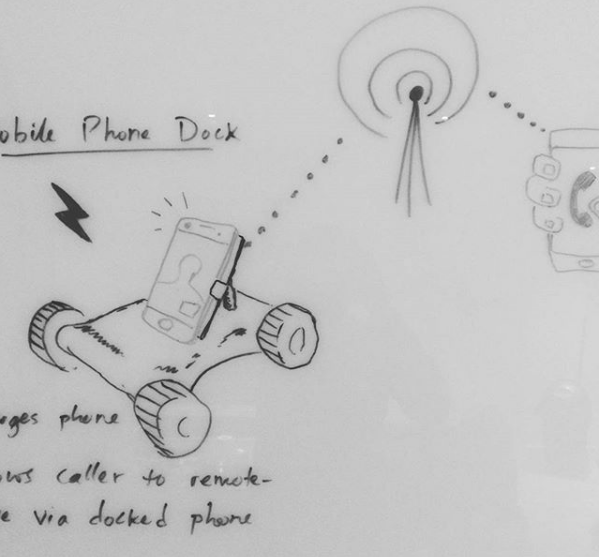 obile Phone Dock
ges phone
ows caller to remote-
e via docked phone